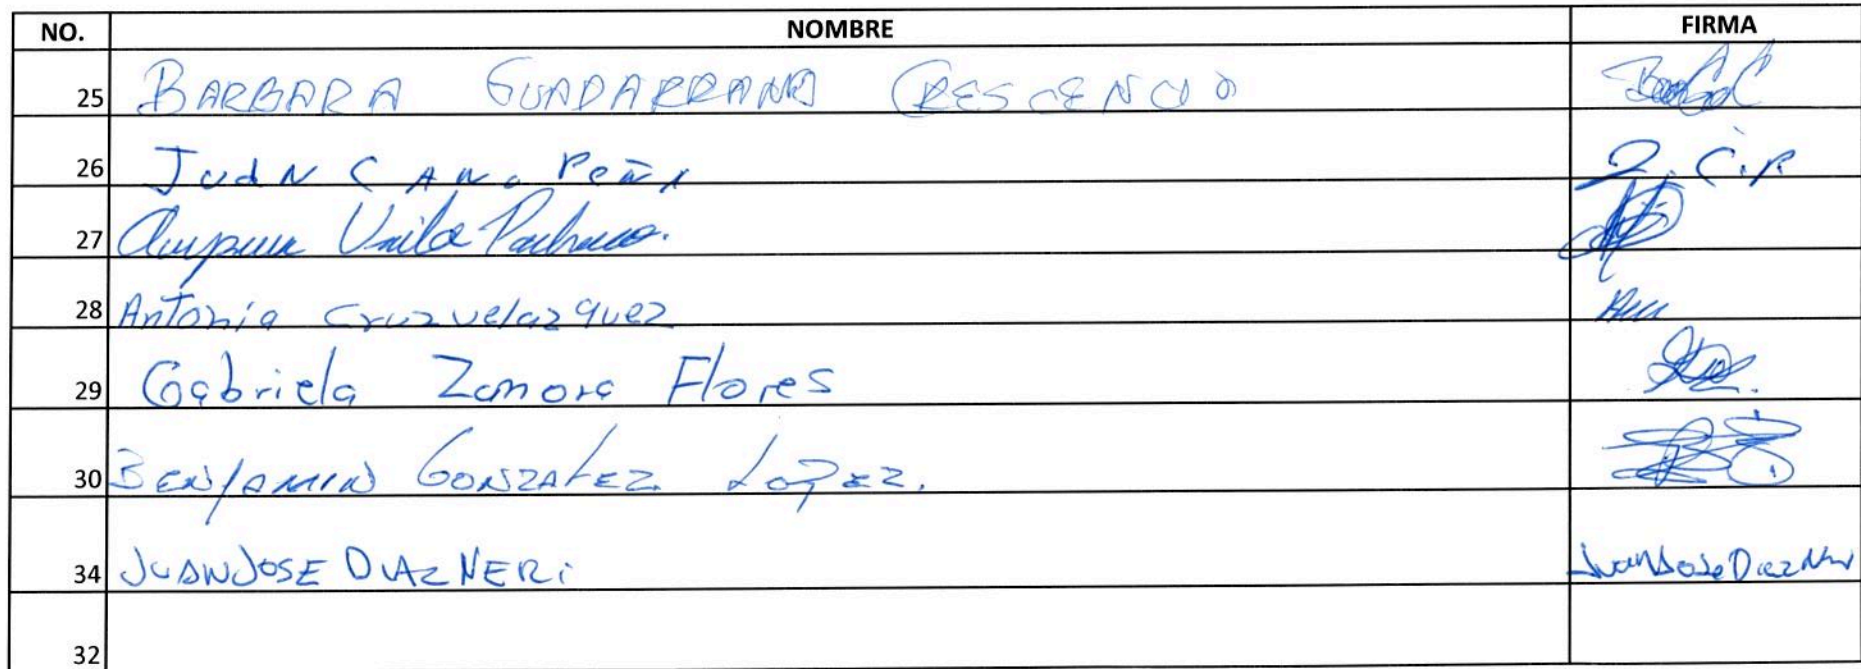 NO. NOMBRE FIRMA
25 BARBARA GUADARRAMA CRESCENCIO
26 JUAN CANO PEÑA J.C.P.
27
28 Antonia Cruz velazquez
29 Gabriela Zamora Flores
30 BENJAMIN GONZALEZ LOPEZ.
34 JUAN JOSE DIAZ NERI Juan Jose Diaz Neri
32